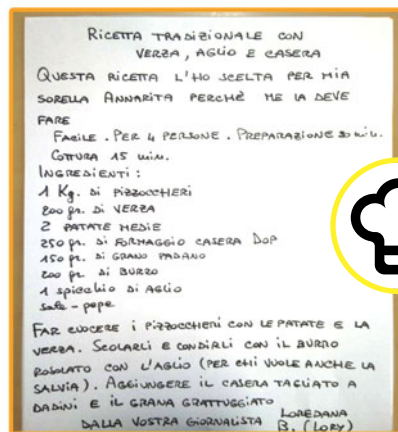 RICETTA TRADIZIONALE CON
VERZA, AGLIO E CASERA
QUESTA RICETTA L'HO SCELTA PER MIA
SORELLA ANNARITA PERCHÈ ME LA DEVE
FARE
FACILE. PER 4 PERSONE. PREPARAZIONE 30 min.
COTTURA 15 min.
INGREDIENTI:
1 Kg. di PIZZOCCHERI
200 gr. di VERZA
2 PATATE MEDIE
250 gr. di FORMAGGIO CASERA DOP
150 gr. di GRANO PADANO
200 gr. di BURRO
1 spicchio di AGLIO
sale - pepe
FAR CUOCERE I PIZZOCCHERI CON LE PATATE E LA
VERZA. SCOLARLI E CONDIRLI CON IL BURRO
ROSOLATO CON L'AGLIO (PER CHI VUOLE ANCHE LA
SALVIA). AGGIUNGERE IL CASERA TAGLIATO A
DADINI E IL GRANA GRATTUGGIATO
DALLA VOSTRA GIORNALISTA LOREDANA
B. (LORY)